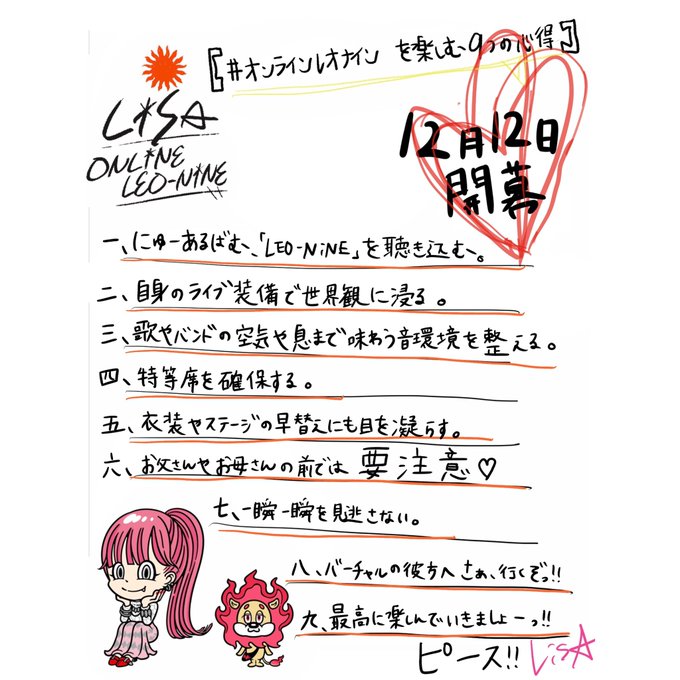 【#オンラインレオナイン を楽しむ9つの心得】
LiSA
ONLiNE
LEO-NiNE
12月12日
開幕
一、にゅーあるばむ、「LEO-NiNE」を聴き込む。
二、自身のライブ装備で世界観に浸る。
三、歌やバンドの空気や息まで味わう音環境を整える。
四、特等席を確保する。
五、衣装やステージの早替えにも目を凝らす。
六、お父さんやお母さんの前では 要注意♡
七、一瞬一瞬を見逃さない。
八、バーチャルの彼方へさぁ、行くぞっ!!
九、最高に楽しんでいきましょーっ!!
ピース!! LiSA